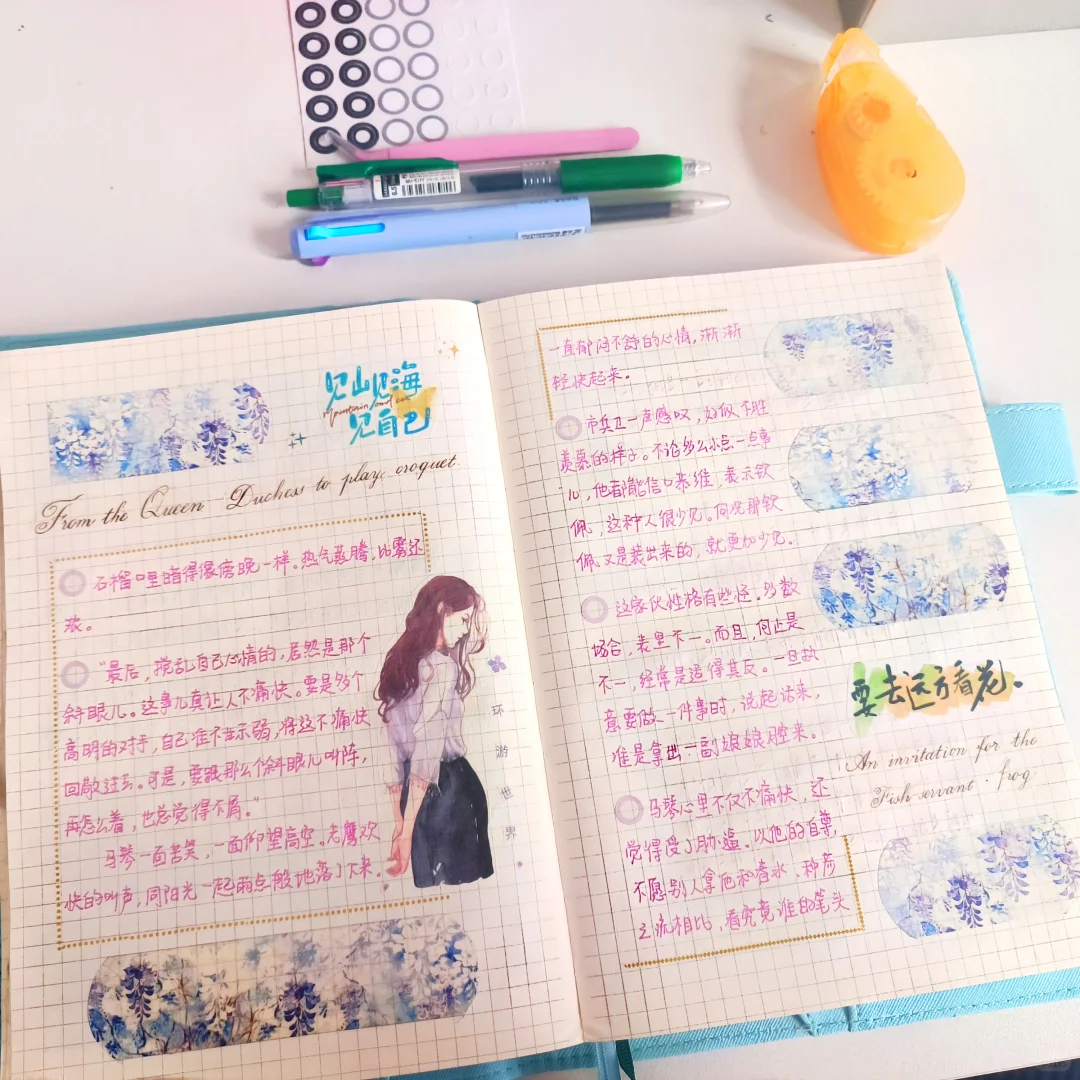 见山见海
Mountain and sea
见自己
From the Queen Duchess to play croquet.
石榴口里暗得像傍晚一样。热气蒸腾,比雾还
浓。
"最后,搅乱自己心情的,居然是那个
斜眼儿。这事儿真让人不痛快。要是个
高明的对手,自己准不甘示弱,将这不痛快
回敬过去。可是,要跟那么个斜眼儿叫阵,
再怎么着,也总觉得不屑。"
马琴一面苦笑,一面仰望高空。老鹰欢
快的叫声,同阳光一起雨点般地落了下来。
环游世界
一直郁闷不舒的心情,渐渐
轻快起来。
市兵卫一声感叹,好似不胜
羡慕的样子。不论多么小点一点事
儿,他都能信口来维,表示钦
佩,这种人很少见。何况那钦
佩又是装出来的,就更加少见。
这家伙性格有些怪。多数
场合,表里不一。而且,何止是
不一,经常是适得其反。一旦执
意要做一件事时,说起话来,
准是拿出一副娘娘腔来。
马琴心里不仅不痛快,还
觉得受了胁逼。以他的自尊,
不愿别人拿他和春水、种彦
之流相比,看究竟谁的笔头
要去远方看花。
An invitation for the
Fish servant · frog